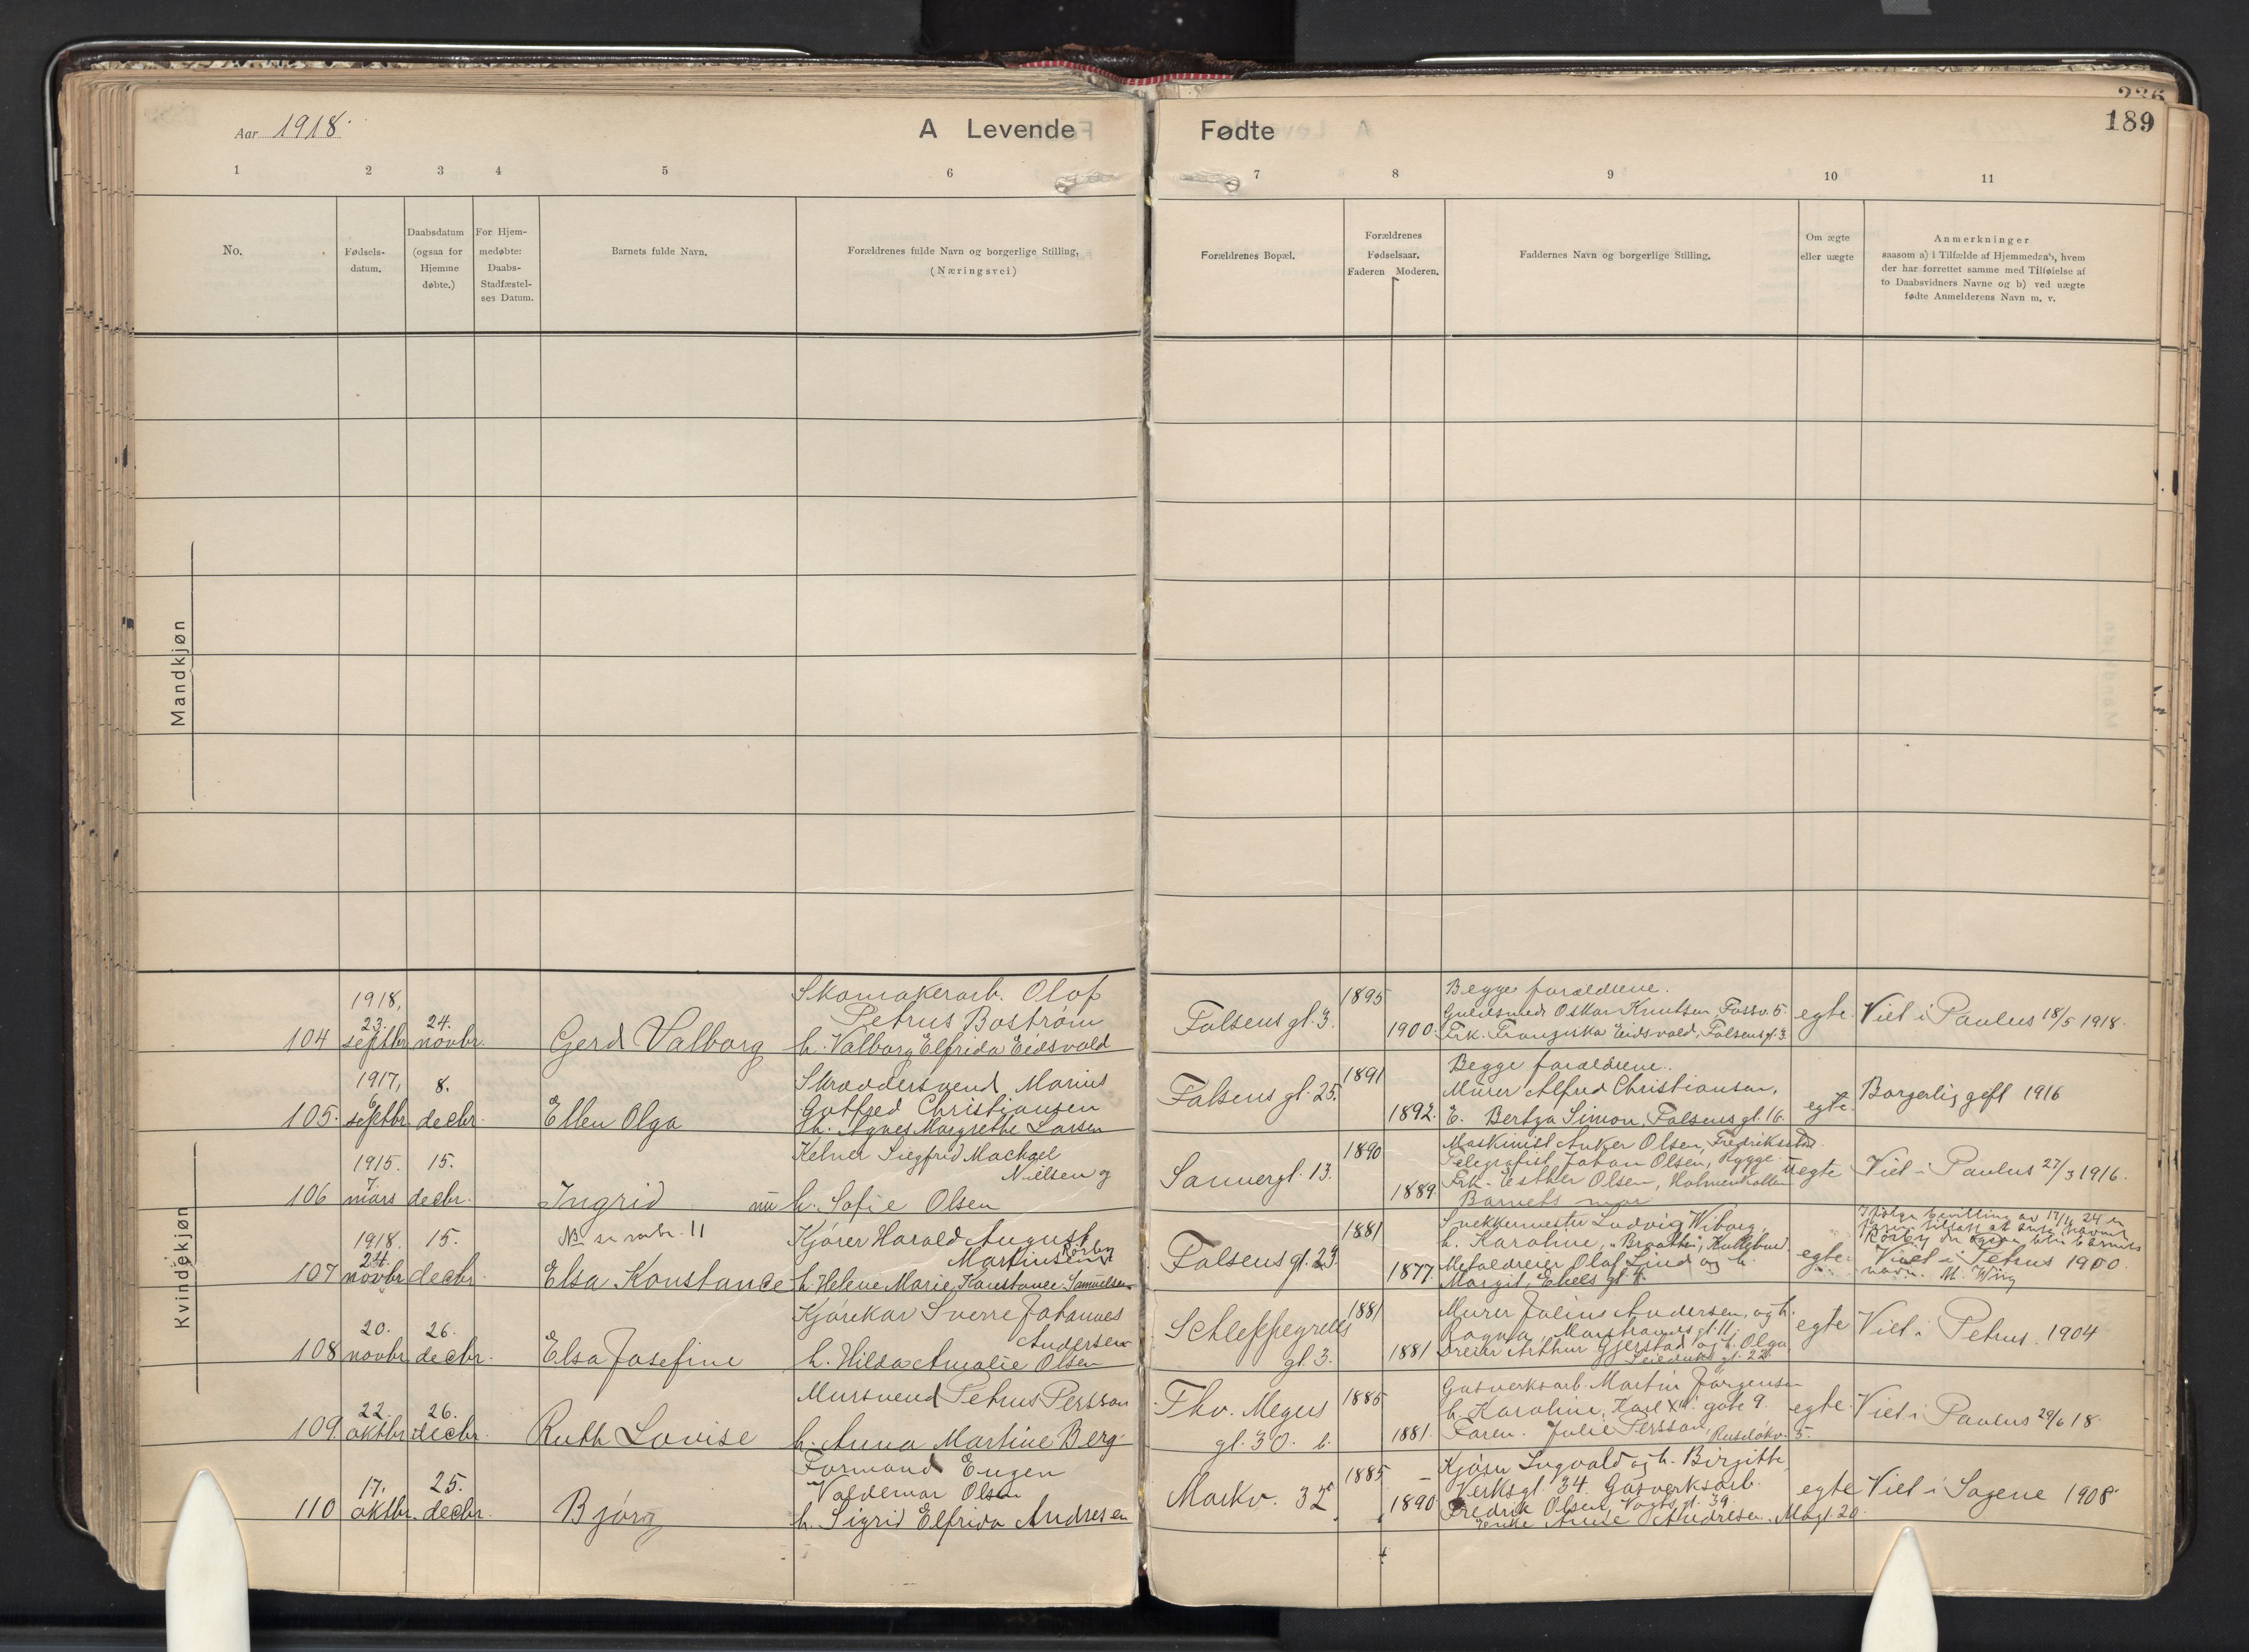 Aar 1918.
A Levende
Fødte
189
1 2 3 4 5 6
7 8 9 10 11
No.
Fødsels-
datum.
Daabsdatum
(ogsaa for
Hjemme
døbte.)
For Hjem-
medøbte:
Daabs-
Stadfæstel-
ses Datum.
Barnets fulde Navn.
Forældrenes fulde Navn og borgerlige Stilling,
(Næringsvei)
Forældrenes Bopæl.
Forældrenes
Fødselsaar.
Faderen Moderen.
Faddernes Navn og borgerlige Stilling.
Om ægte
eller uægte
Anmerkninger
saasom a) i Tilfælde af Hjemmedaab, hvem
der har forrettet samme med Tilføielse af
to Daabsvidners Navne og b) ved uægte
fødte Anmelderens Navn m. v.
Mandkjøn
Kvindekjøn
104
1918,
23.
septbr.
24.
novbr.
Gerd Valborg
Skomakerarb. Olaf
Petrus Boström
h. Valborg Elfrida Eidsvold
Falsens gt. 3.
1895
1900.
Begge forældrene.
Guldsmed Oskar Knutsen Fossv. 5.
Frk. Franziska Eidsvold, Falsensgt. 3
egte.
Viet i Paulus 18/5 1918.
105.
1917,
6
septbr.
8.
decbr.
Ellen Olga
Skræddersvend Marius
Gotfred Christiansen
h. Agnes Margrethe Larsen
Falsens gt. 25.
1891
1892.
Begge forældrene.
Murer Alfred Christiansen,
E. Bertza Simon, Falsens gt. 16.
egte.
Borgerlig gift 1916
106
1915.
7.
mars
15.
decbr.
Ingrid
Kelner Siegfred Machael
Nielsen og
nu h. Sofie Olsen
Sannergt. 13.
1890
1889.
Maskinist Anker Olsen, Fredriksstad.
Telegrafist Johan Olsen, Rygge.
Frk. Esther Olsen, Holmenkollen
Barnets mor
uegte
Viet i Paulus 27/3 1916.
107
1918.
24.
novbr.
15.
decbr.
NB se rubr. 11
Elsa Konstance
Kjører Harald August
Martinsen Rörby
h. Helene Marie Konstance Samuelsen
Falsens gt. 23.
1881
1877.
Snekkermester Ludvig Wiborg,
h. Karoline, "Braathen", Kolbotn
Metaldreier Olaf Lind og h.
Margit, Ekels gt. 4.
egte.
Ifølge bevilling av 17/4 24 er
Rörby
Viet i Petrus 1900.
navn. M. Wiig
108
20.
novbr.
26.
decbr.
Elsa Josefine
Kjørekar Sverre Johannes
Andersen
h. Hilda Amalie Olsen
Schleppegrells
gt. 3.
1881
1881
Murer Julius Andersen, og h.
Ragna, Marstrands gt. 11,
Dreier Arthur Gjerstad og h. Olga
Seilduks gt. 22.
egte
Viet i Petrus. 1904
109
22.
oktbr.
26.
decbr.
Ruth Lovise
Mursvend Petrus Persson
h. Anna Martine Berg
Thv. Meyers
gt. 30. b.
1885
1881.
Gasverksarb. Martin Jørgensen
h. Karoline, Karl XII. gate 9.
Faren. Julie Persson, Ruseløkv. 5.
egte.
Viet i Paulus 29/6 18.
110
17.
oktbr.
25.
decbr.
Bjørg
Formand Eugen
Valdemar Olsen
h. Sigrid Elfrida Andresen
Markv. 32
1885
1890
Kjøsn Ingvald og h. Birgitte,
Verksgt. 34. Gasverksarb.
Fredrik Olsen, Vogts gt. 39.
Enke Anne Andresen, Magt. 20.
egte
Viet i Sagene 1908.